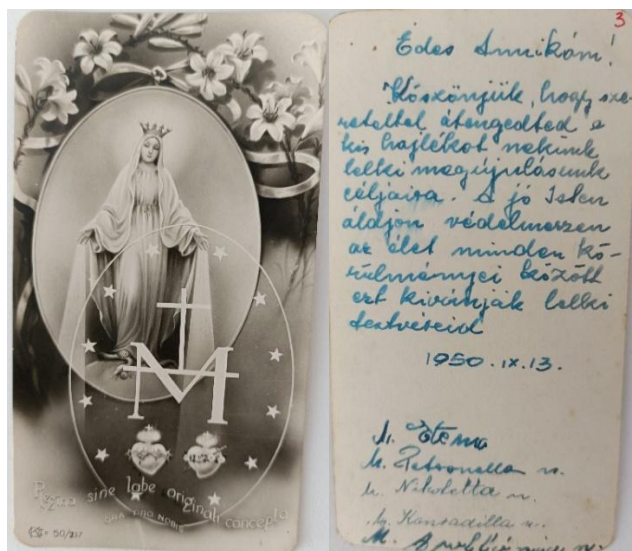 Regina sine labe originali concepta
ORA PRO NOBIS
50/
3
Édes Annikám!
Köszönjük, hogy sze-
retettel átengedted e
kis hajlékot nekünk
lelki megújulásunk
céljaira. A jó Isten
áldjon védelmezzen
az élet minden kö-
rülményei között
ezt kívánják lelki
testvéreid
1950.IX.13.
M.
M. Petronella n.
M. Nikoletta n.
M. Konradilla n.
M.